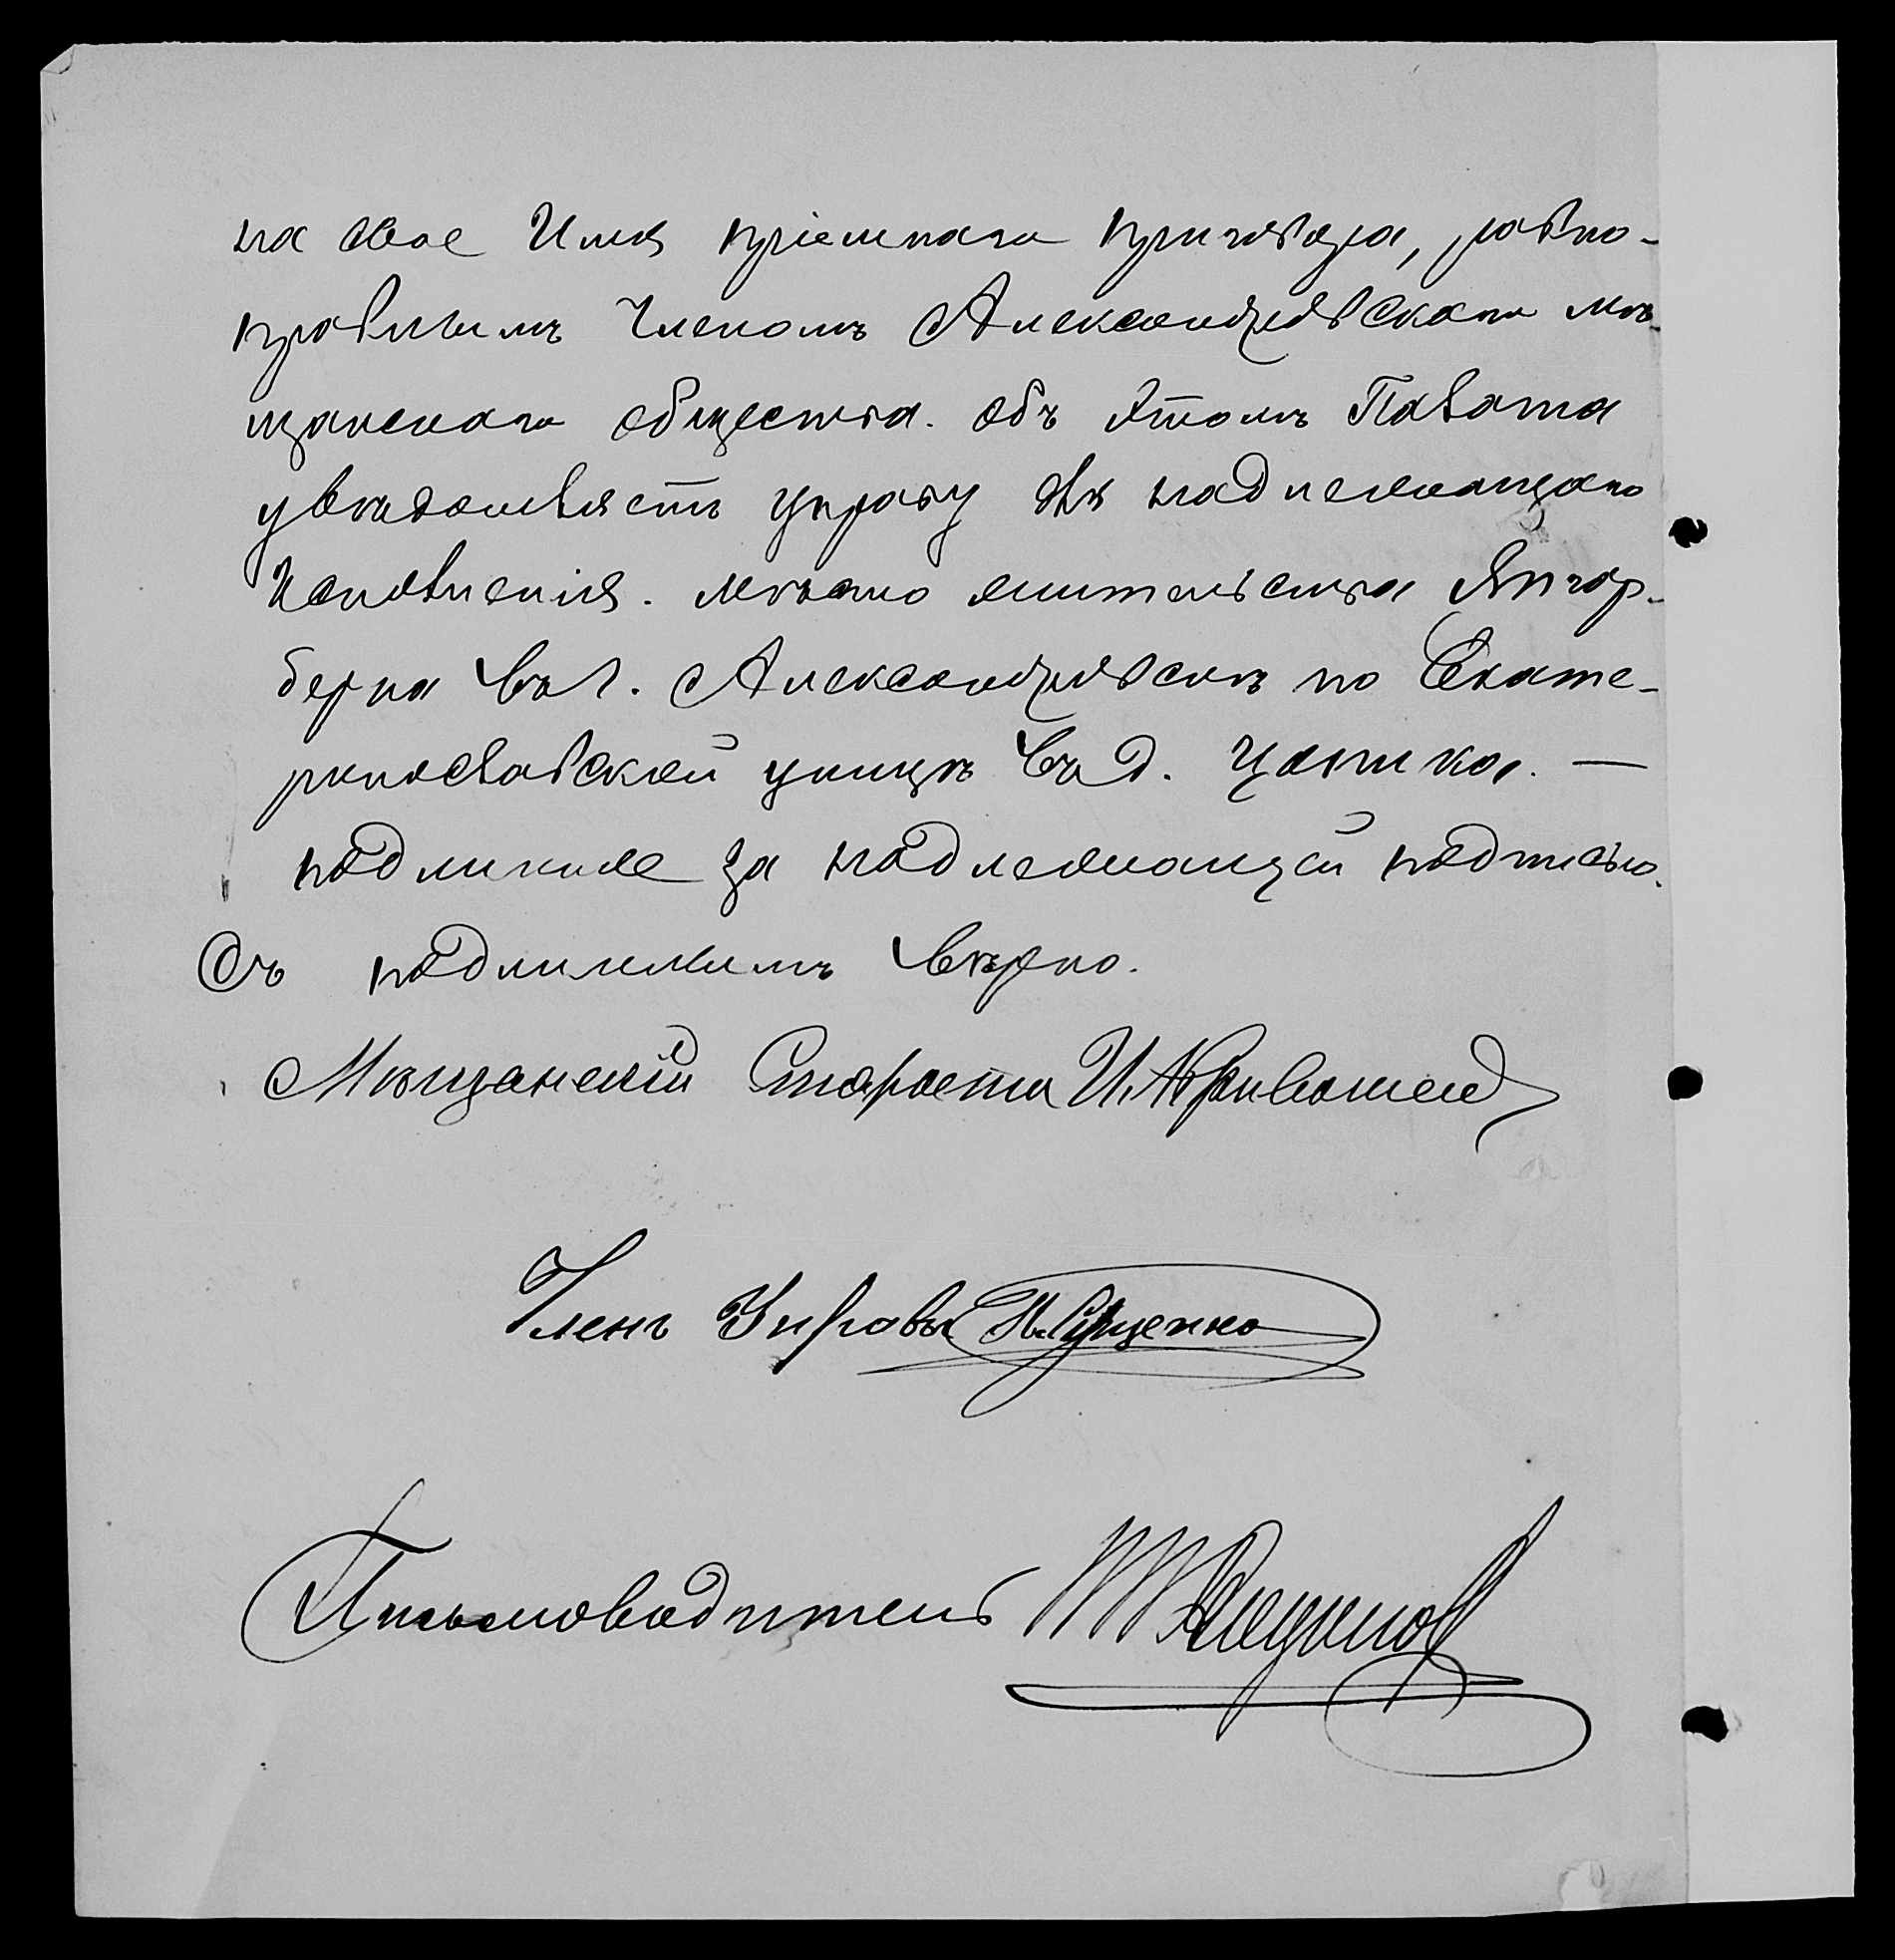 на свое Имя пріемнаго приговора, равно-
правнымъ Членомъ Александровскаго мѣ-
щанскаго общества. Объ этомъ Палата
увѣдомляетъ управу для надлежащаго
Исполненія. Мѣсто жительства Янгор-
бера въ г. Александровскѣ по Екате-
ринославской улицѣ въ д. Цапика. —
подлинное за надлежащей подписью.
Съ подлиннымъ вѣрно.
Мѣщанскій Староста И. Кривошей
Членъ Управы Сущенко
Письмоводитель